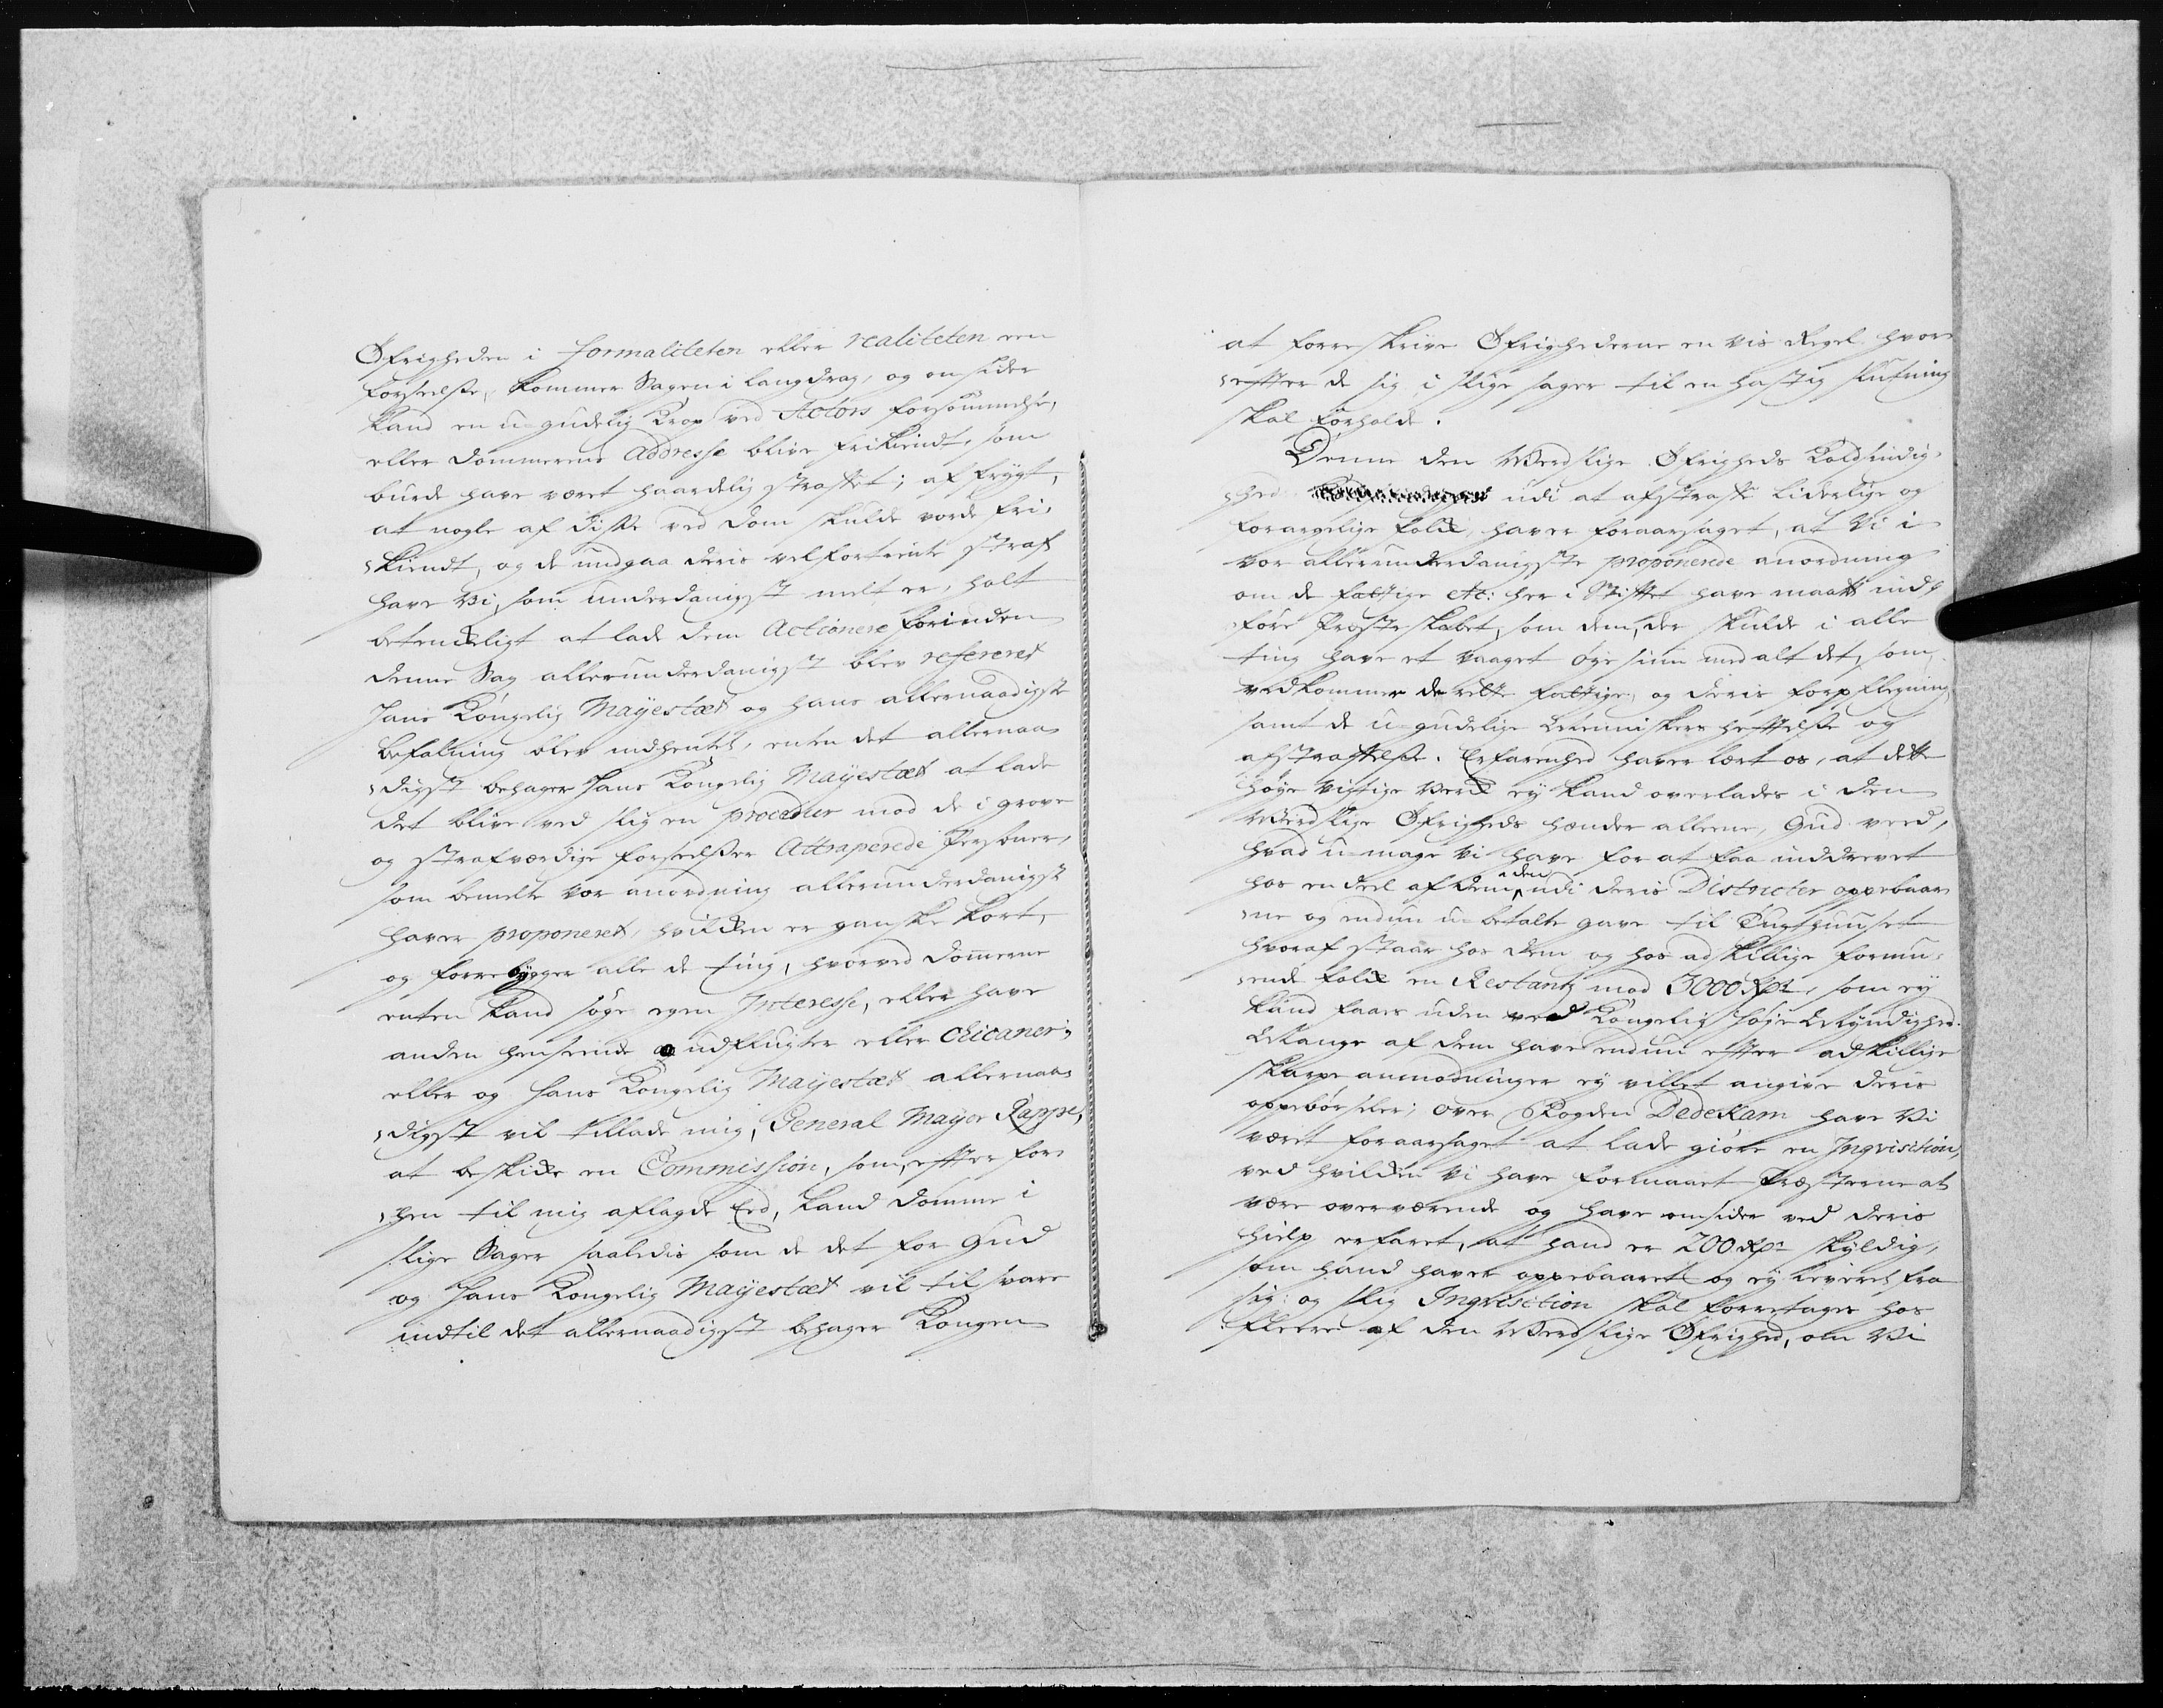 Øfrigheden i formaliteten eller realiteten een
forseelse, kommer Sagen i langdrag, og omsider
kand en u-gudelig Krop ved Actors forsømmelse,
eller Dommerens Addresse blive frikiendt, som
burde have været haardelig straffet; af frygt,
at nogle af disse ved dom skulde vorde fri-
kiendt, og de undgaa deris velfortiente straf
have Vi, som underdanigst melt er, holt
betenkeligt at lade dem Actionere forinden
denne Sag allerunderdanigst blev refereret
Hans Kongelig Mayestæt og hans allernaadigste
befalning blev indhentet, enten det allernaa-
digst behager Hans Kongelig Mayestæt at lade
det blive ved slig en procedur mod de i grove
og strafværdige forseelser Attraperede Personer,
som bemelte vor anordning allerunderdanigst
haver proponeret, hvilken er ganske kort,
og forrebygger alle de ting, hvorved dommerne
enten kand søge egen Interesse, eller have
anden henseende a udflugter eller Chicaner;
eller og Hans Kongelig Mayestæt allernaa-
digst vil tillade mig, General Mayor Rappe,
at beskikke en Commission, som, efter for-
hen til mig aflagde Eed, kand domme i
slige Sager saaledis som de det for Gud
og Hans Kongelig Mayestæt vil tilsvare
indtil det allernaadigst behager Kongen
at forreskrive Øfrighederne en vis Regel hvor-
efter de sig i slige sager til en hastig slutning
skal forholde.
Denne den Verdslige Øfrigheds Koldsindig-
hed udi at afstraffe liderlige og
forargelige folk, haver foraarsaget, at Vi i
vor allerunderdanigste proponerede anordning
om de fattige etc: her i Stiftet have maatt ind-
føre Presteskabet, som dem, der skulde i alle
ting have et vaaget øye sinn med alt det, som
vedkommer de rette fattige, og deris forpflegning,
samt de u-gudelige Menniskers heftelse og
afstraffelse. Erfarenhed haver lært os, at dette
høye vigtige Verk ey kand overlades i den
Verdslige Øfrigheds hænder alleene, Gud veed,
hvad u-mage Vi have for at faa inddrevet
hos en deel af dem den udi deris Districter oppebaar-
ne og endnu u-betalte gave til Tugthuuset
hvoraf staar hos dem og hos adskillige formu-
ende folk en Restantz mod 3000 Rdr, som ey
kand faaes uden ved Kongelig høye Myndighed.
Mange af dem have endnu efter adskillige
skarpe anmodninger ey villet angive deris
oppebørseler; over Fogden Dedekam have Vi
været foraarsaget at lade giøre en Inqvisition,
ved hvilken Vi have formaaet Præsterne at
være overværende og have omsider ved deris
hielp erfaret, at hand er 200 Rdr skyldig,
som hand haver oppebaaret og ey leveret fra
sig: og slig Inqvisition skal forretages hos
fleere af den Verdslige Øfrighed, om Vi